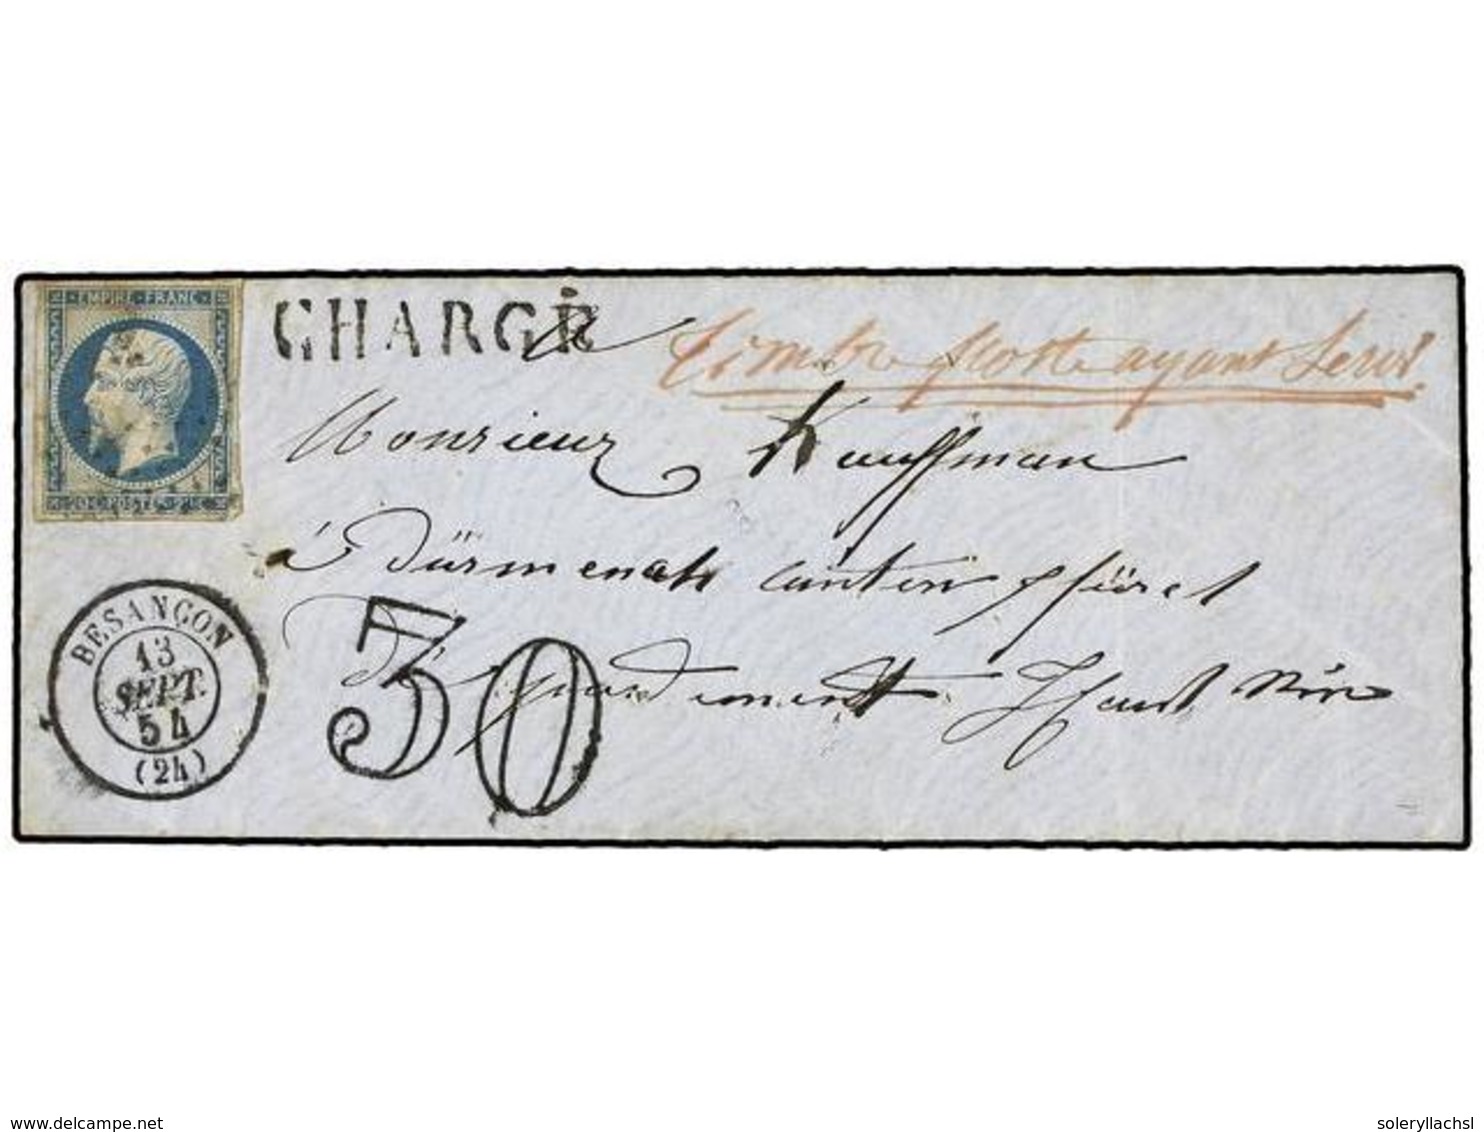 EMPIRE · FRANC ·
20 c. POSTES 20 c.
CHARGÉ
Timbre poste ayant Servi
a
Monsieur Kauffman
à Dürmenach canton ffüret
Département Haut Rin
BESANCON
13
SEPT.
54
(24)
30
www.delcampe.net
soleryllachsl